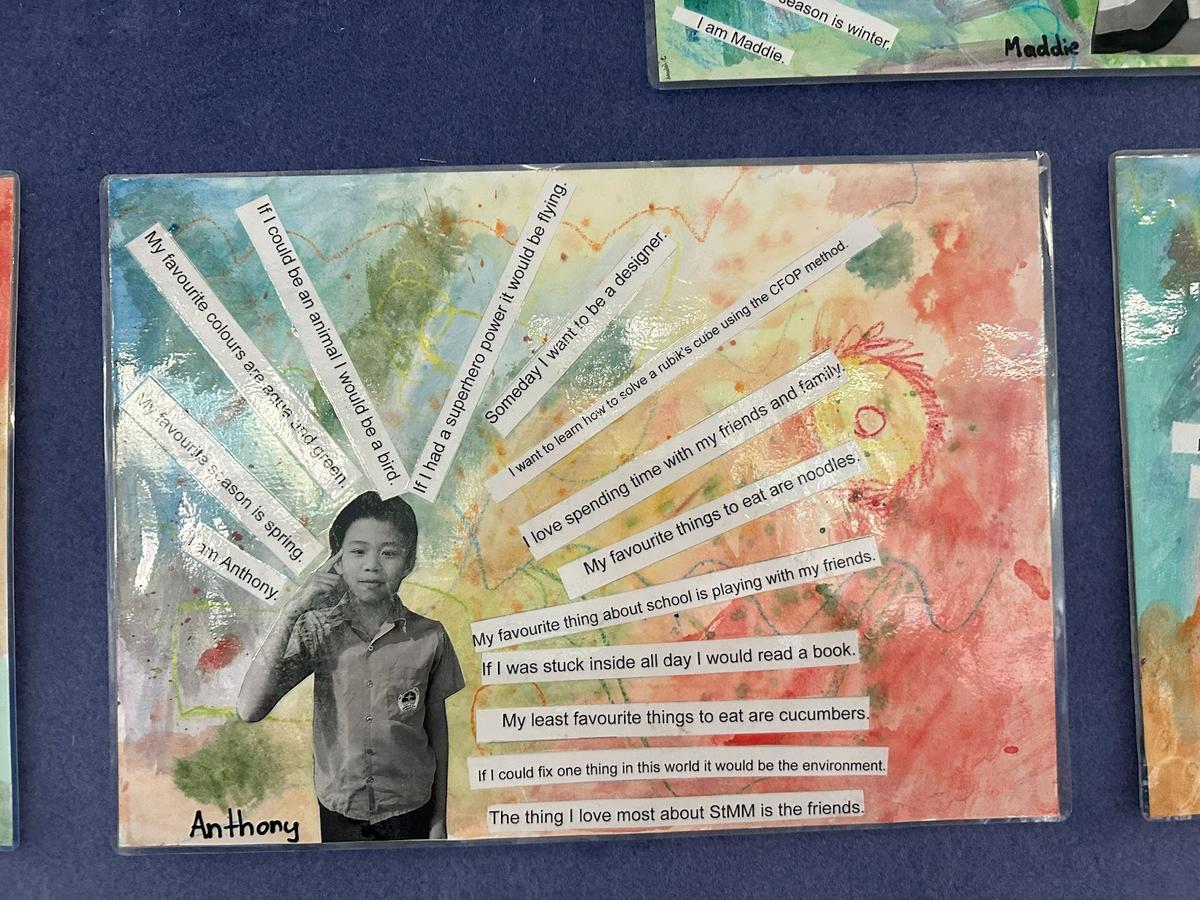 season is winter.
I am Maddie.
Maddie
I am Anthony.
My favourite season is spring.
My favourite colours are aqua and green.
If I could be an animal I would be a bird.
If I had a superhero power it would be flying.
Someday I want to be a designer.
I want to learn how to solve a rubik's cube using the CFOP method.
I love spending time with my friends and family.
My favourite things to eat are noodles.
My favourite thing about school is playing with my friends.
If I was stuck inside all day I would read a book.
My least favourite things to eat are cucumbers.
If I could fix one thing in this world it would be the environment.
The thing I love most about StMM is the friends.
Anthony